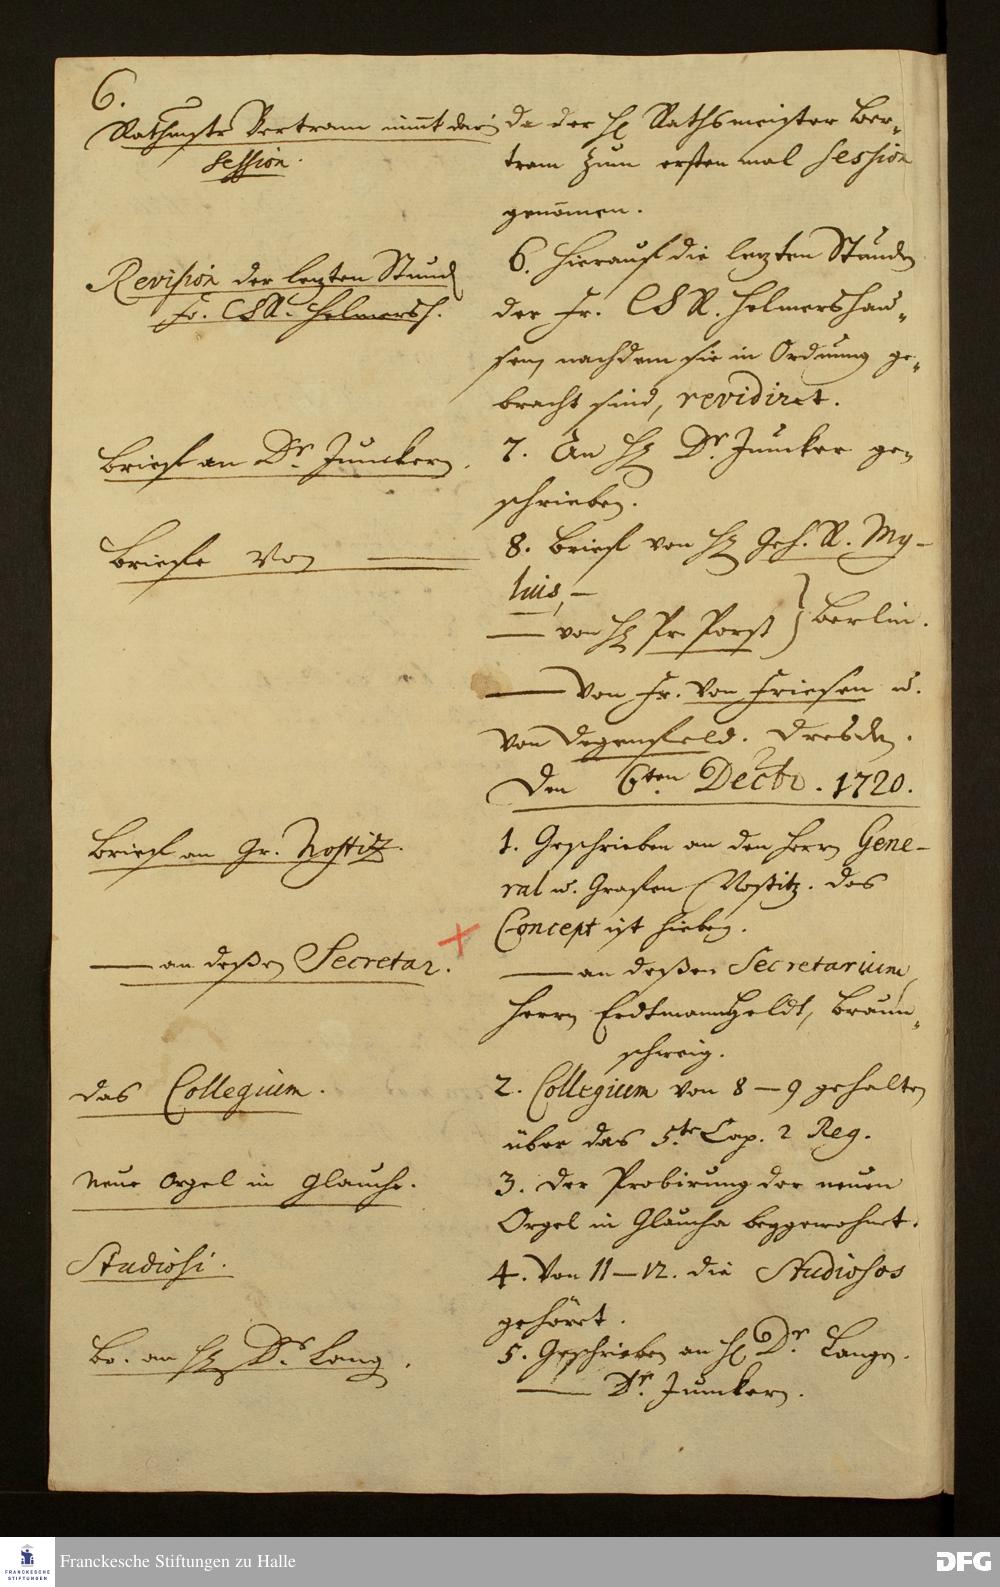 6.
Rathmstr Bertram nimt dari
Session.
da der H Rathsmeister Ber„
tram zum ersten mal Session
genomen.
Revision der letzten Stund
Fr. CSR. Helmersh.
6. Hierauf die letzten Stunden
der Fr. CSR. Helmershau„
sen, nachdem sie in Ordnung ge„
bracht sind, revidiret.
Brief an Dr. Junckern.
7. An H Dr. Juncker ge„
schrieben.
Briefe von ——
8. Brief von H Geh. R. My–
lius, –
— von H Pr. Porst } Berlin.
— von Fr. von Friesen u.
von Degenfeld. Dresden.
Den 6ten Decbr. 1720.
Brief an Gr. Nostitz.
1. Geschrieben an den Herrn Gene–
ral u. Grafen Nostitz. das
Concept ist hiebey.
— an deßen Secretar.
— an deßen Secretarium,
Herrn Erdtmann Heldt, Braun„
schweig.
das Collegium.
2. Collegium von 8–9 gehalten
über das 5.te Cap. 2 Reg.
Neue Orgel in Glauche.
3. Der Probirung der neuen
Orgel in Glaucha beygewohnet.
Studiosi.
4. Von 11–12. die Studiosos
gehöret.
Br. an H Dr. Lang.
5. Geschrieben an H Dr. Langen.
— Dr. Junckern.
FRANCKESCHE
STIFTUNGEN
Franckesche Stiftungen zu Halle
DFG